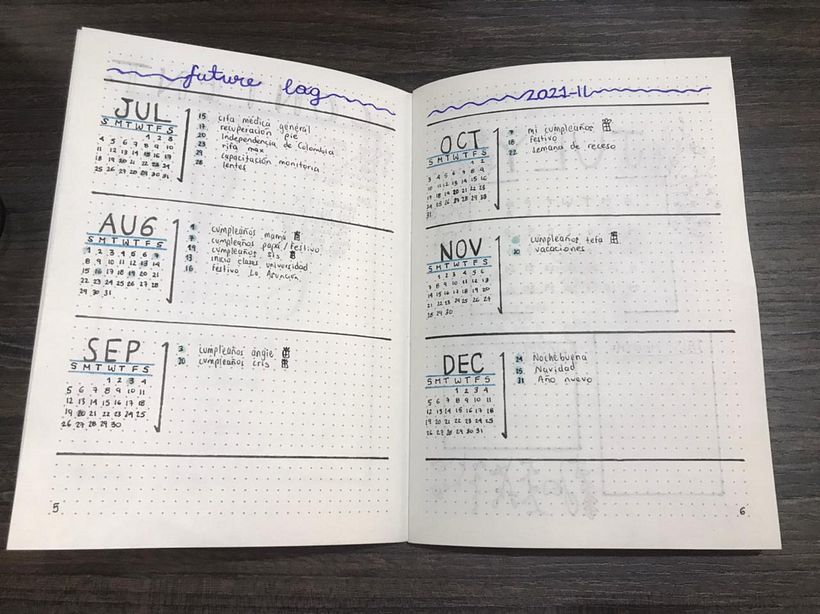 future log
JUL
S M T W T F S
1 2 3
4 5 6 7 8 9 10
11 12 13 14 15 16 17
18 19 20 21 22 23 24
25 26 27 28 29 30 31
15 cita médica general
17 recuperación pie
20 independencia de Colombia
23 rifa max
capacitación monitoria
28 lentes
AUG
S M T W T F S
1 2 3 4 5 6 7
8 9 10 11 12 13 14
15 16 17 18 19 20 21
22 23 24 25 26 27 28
29 30 31
cumpleaños mamá
7 cumpleaños papá / festivo
19 cumpleaños sis
13 inicio clases universidad
16 festivo La Asunción
SEP
S M T W T F S
1 2 3 4
5 6 7 8 9 10 11
12 13 14 15 16 17 18
19 20 21 22 23 24 25
26 27 28 29 30
3 cumpleaños angie
20 cumpleaños cris
5
2021-II
OCT
S M T W T F S
1 2
3 4 5 6 7 8 9
10 11 12 13 14 15 16
17 18 19 20 21 22 23
24 25 26 27 28 29 30
31
9 mi cumpleaños
18 festivo
22 semana de receso
NOV
S M T W T F S
1 2 3 4 5 6
7 8 9 10 11 12 13
14 15 16 17 18 19 20
21 22 23 24 25 26 27
28 29 30
cumpleaños tefa
20 vacaciones
DEC
S M T W T F S
1 2 3 4
5 6 7 8 9 10 11
12 13 14 15 16 17 18
19 20 21 22 23 24 25
26 27 28 29 30 31
24 Nochebuena
25 Navidad
31 Año nuevo
6